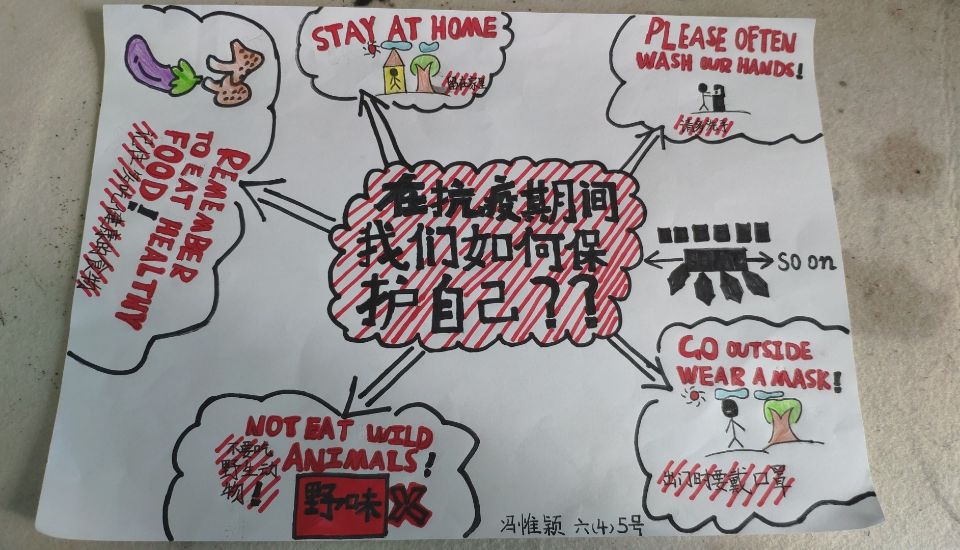 STAY AT HOME
留在家里
PLEASE OFTEN
WASH OUR HANDS!
请多洗手
REMEMBER
TO EAT
FOOD HEALTHY!
在抗疫期间
我们如何保
护自己??
SO ON
GO OUTSIDE
WEAR A MASK!
出门时要戴口罩
NOT EAT WILD
ANIMALS!
不要吃
野生动
物!
野味X
冯惟颖 六(4)5号